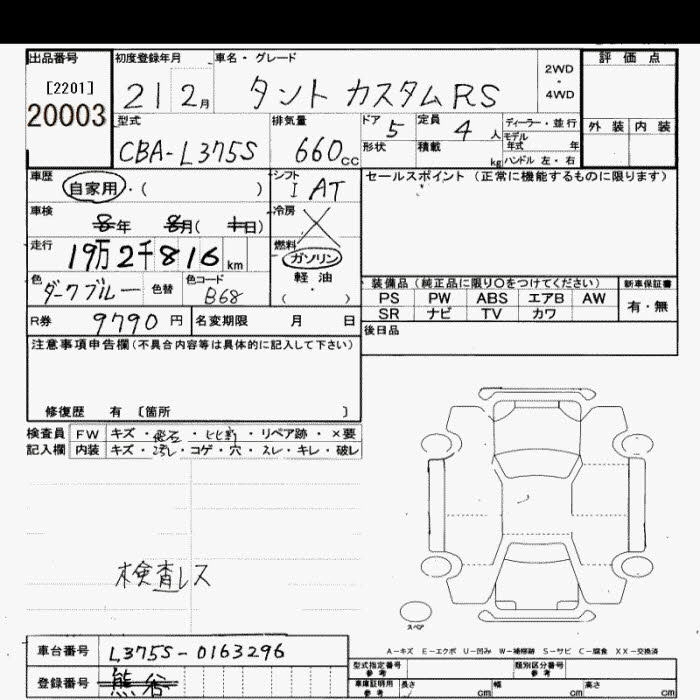 出品番号 初度登録年月 車名・グレード 評価点
[2201] 21 2月 タント カスタム RS 2WD ・ 4WD
20003 型式 排気量 ドア 5 定員 4 人 ディーラー・並行 外装 内装
CBA-L375S 660cc 形状 積載 kg モデル年式 年 ハンドル 左・右
車歴 自家用・( ) シフト I AT セールスポイント (正常に機能するものに限ります)
車検 8年 8月( 1日) 冷房
走行 19万2千816km 燃料 ガソリン
色 ダークブルー 色替 色コード B68 軽油 ( )
装備品 (純正品に限り○をつけてください) 新車保証書
PS PW ABS エアB AW 有・無
SR ナビ TV カワ
R券 9790円 名変期限 月 日 後日品
注意事項申告欄 (不具合内容等は具体的に記入して下さい)
修復歴 有 〔箇所 〕
検査員 FW キズ・飛石・ヒビ割・リペア跡・×要
記入欄 内装 キズ・汚レ・コゲ・穴・スレ・キレ・破レ
検査レス
スペア
車台番号 L375S-0163296
A-キズ E-エクボ U-凹み W-補修跡 S-サビ C-腐食 XX-交換済
登録番号 熊谷
型式指定番号 参考 類別区分番号 参考
車庫証明用 参考 長さ cm 幅 cm 高さ cm